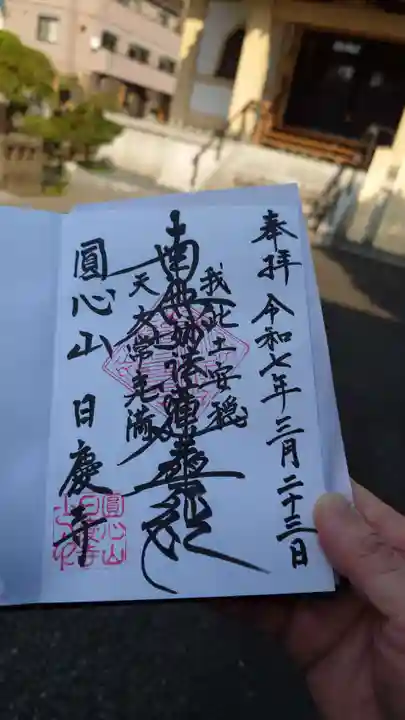 奉拝
令和七年三月二十三日
我此土安穏
南無妙法蓮華経
天人常充満
圓心山 日慶寺
圓心山
日慶寺